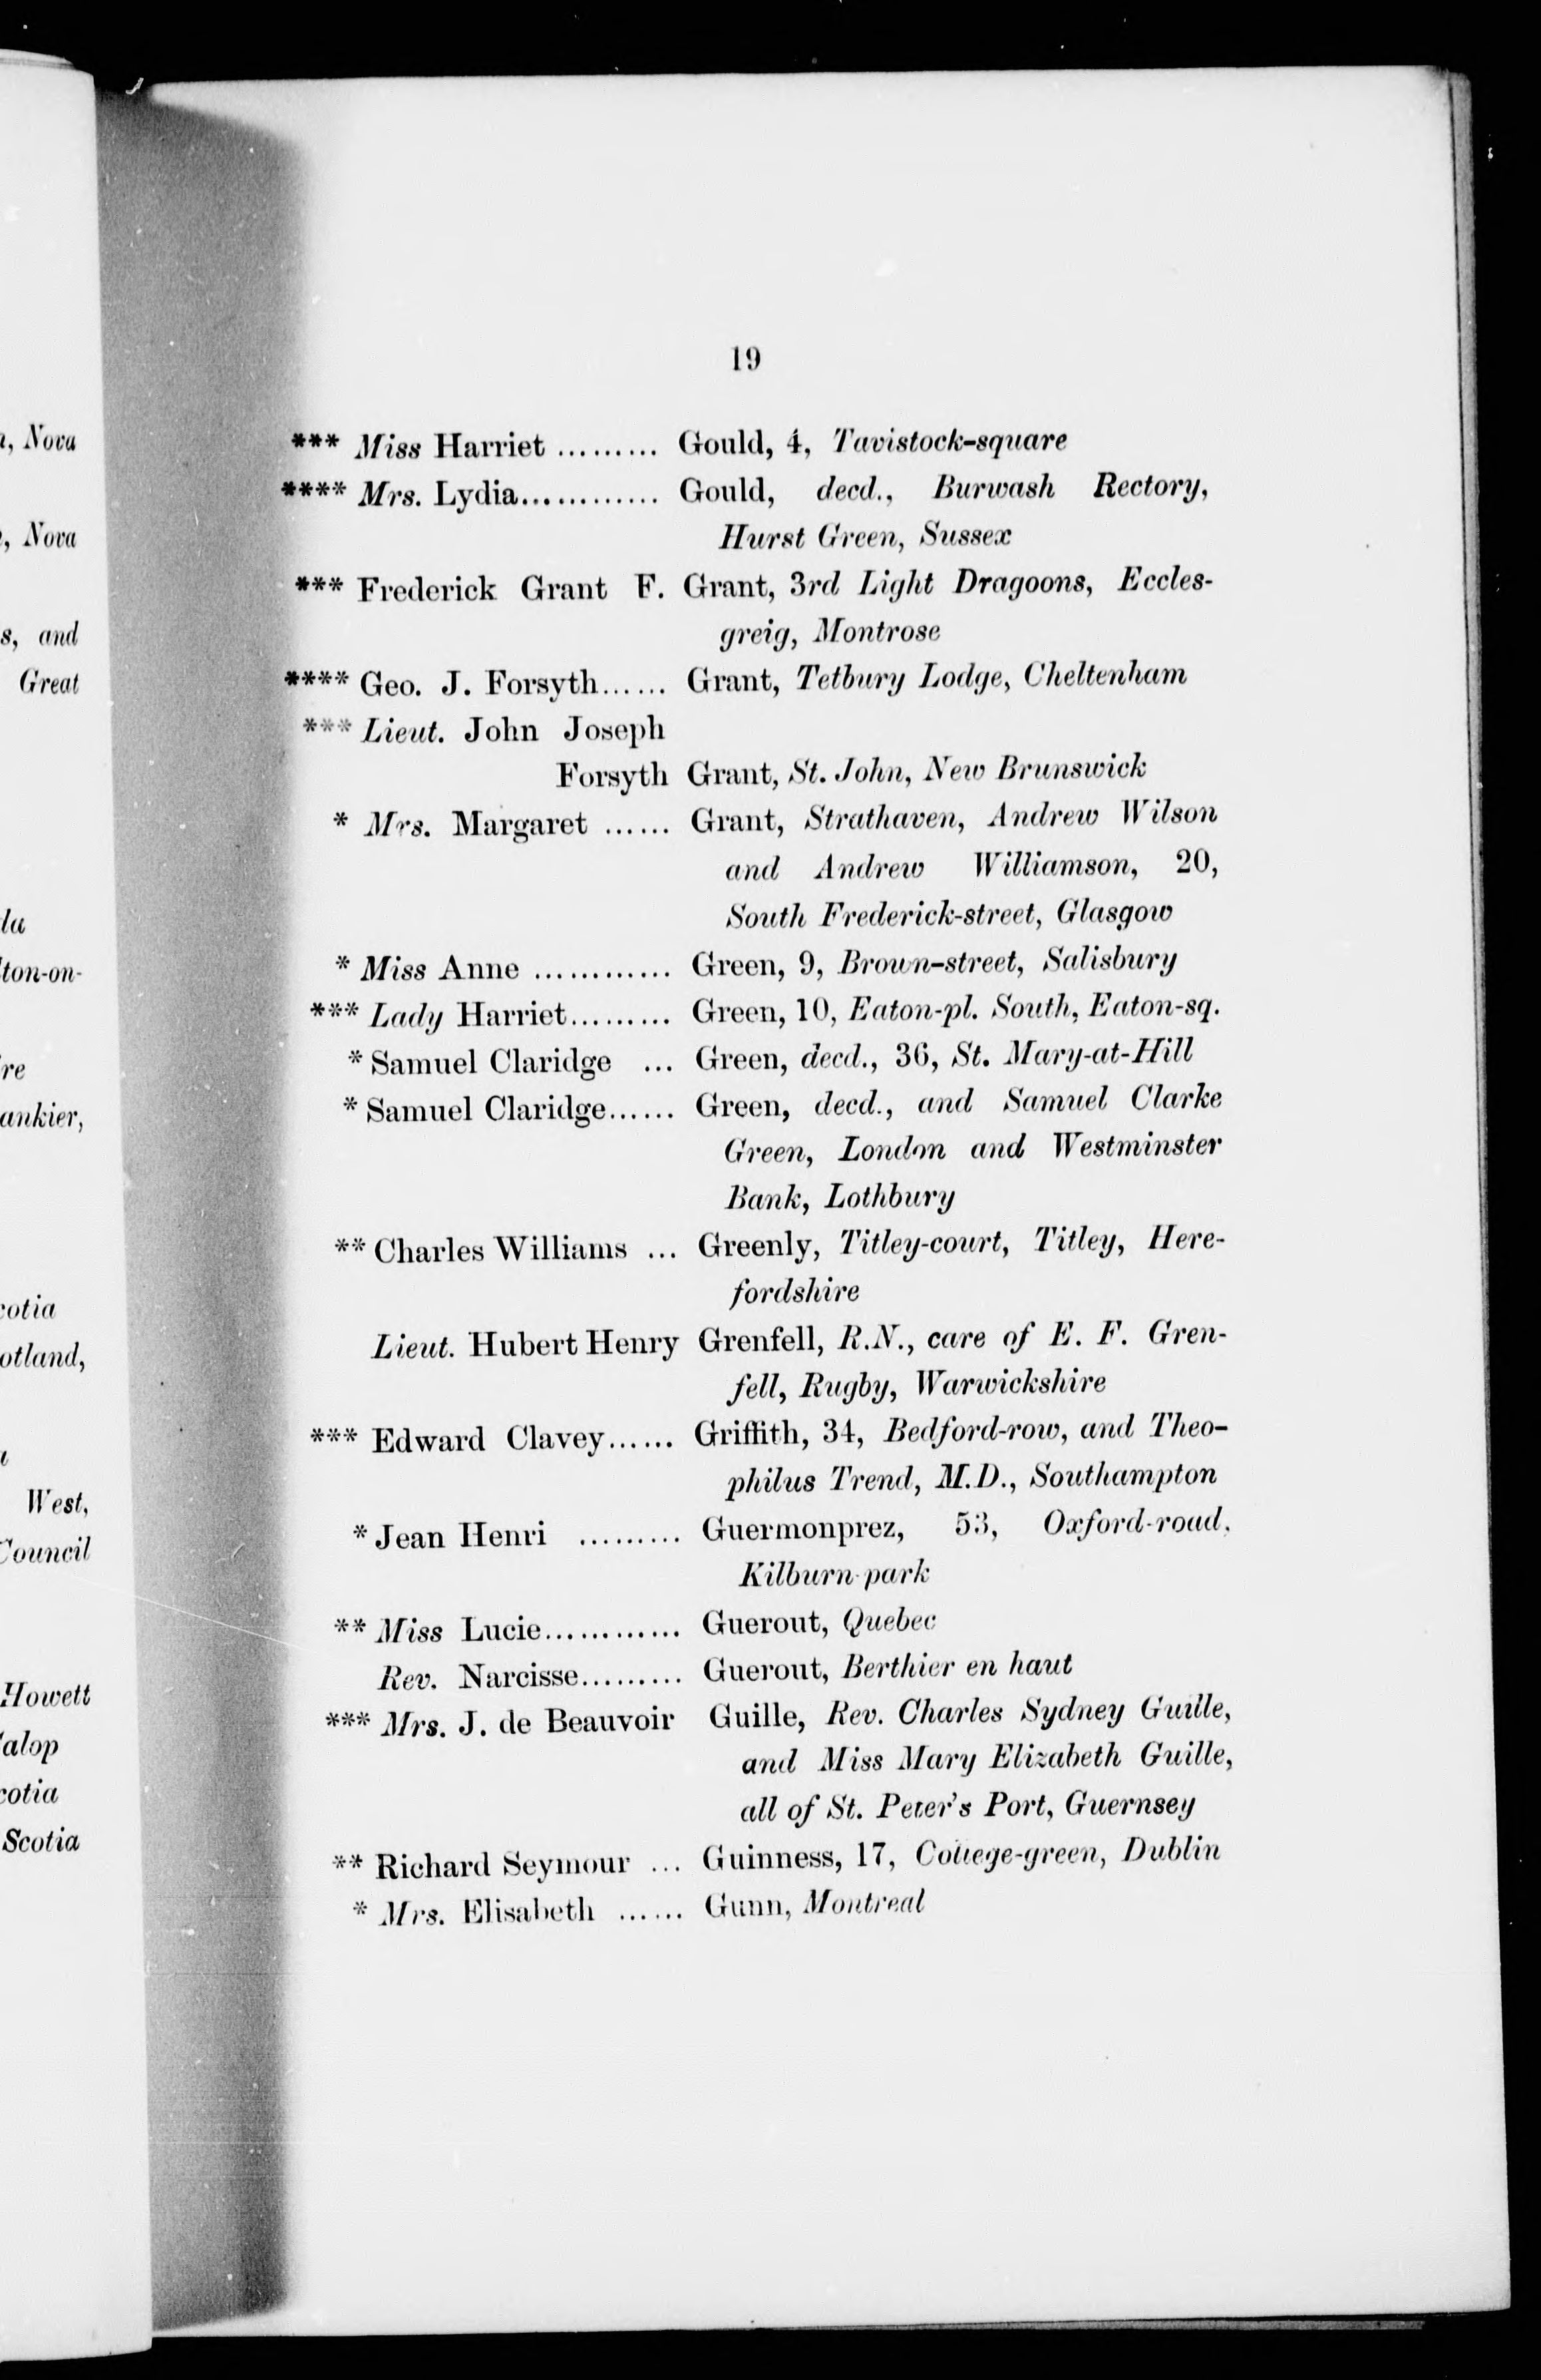 19
*** Miss Harriet ......... Gould, 4, Tavistock-square
**** Mrs. Lydia............ Gould, decd., Burwash Rectory,
Hurst Green, Sussex
*** Frederick Grant F. Grant, 3rd Light Dragoons, Eccles-
greig, Montrose
**** Geo. J. Forsyth...... Grant, Tetbury Lodge, Cheltenham
*** Lieut. John Joseph
Forsyth Grant, St. John, New Brunswick
* Mrs. Margaret ...... Grant, Strathaven, Andrew Wilson
and Andrew Williamson, 20,
South Frederick-street, Glasgow
* Miss Anne ............ Green, 9, Brown-street, Salisbury
*** Lady Harriet......... Green, 10, Eaton-pl. South, Eaton-sq.
* Samuel Claridge ... Green, decd., 36, St. Mary-at-Hill
* Samuel Claridge...... Green, decd., and Samuel Clarke
Green, London and Westminster
Bank, Lothbury
** Charles Williams ... Greenly, Titley-court, Titley, Here-
fordshire
Lieut. Hubert Henry Grenfell, R.N., care of E. F. Gren-
fell, Rugby, Warwickshire
*** Edward Clavey...... Griffith, 34, Bedford-row, and Theo-
philus Trend, M.D., Southampton
* Jean Henri ......... Guermonprez, 53, Oxford-road,
Kilburn-park
** Miss Lucie............ Guerout, Quebec
Rev. Narcisse......... Guerout, Berthier en haut
*** Mrs. J. de Beauvoir Guille, Rev. Charles Sydney Guille,
and Miss Mary Elizabeth Guille,
all of St. Peter's Port, Guernsey
** Richard Seymour ... Guinness, 17, College-green, Dublin
* Mrs. Elisabeth ...... Gunn, Montreal